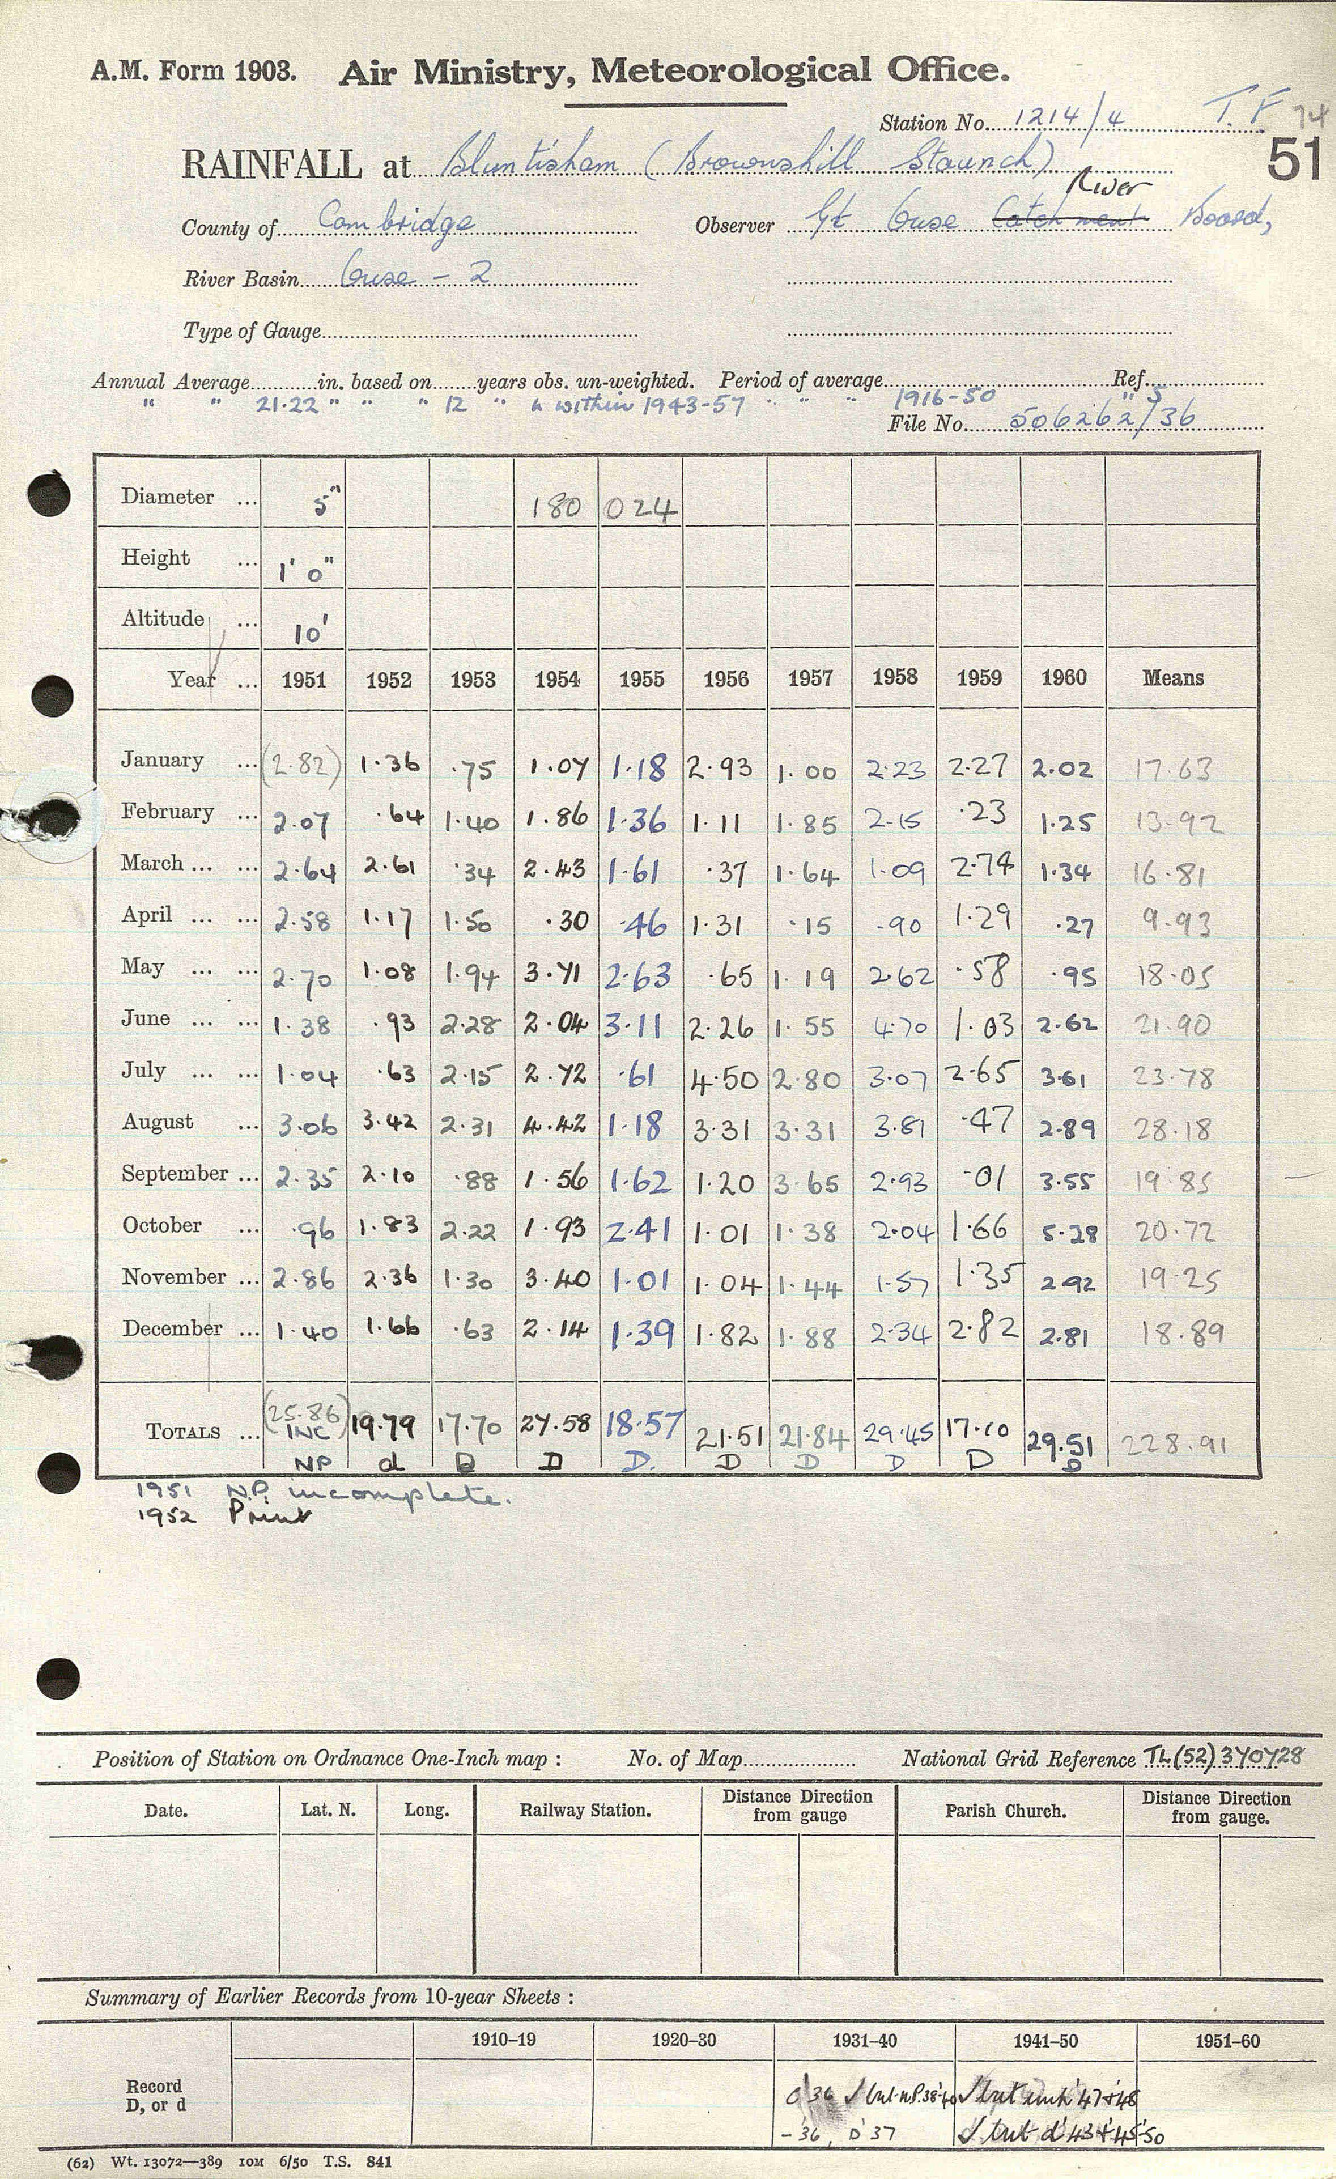 A.M. Form 1903. Air Ministry, Meteorological Office.
Station No. 1214/4 T.F 74
RAINFALL at Bluntisham (Brownshill Staunch) 51
County of Cambridge Observer Gt Ouse Catchment River Board,
River Basin Ouse - 2
Type of Gauge
Annual Average in. based on years obs. un-weighted. Period of average Ref.
" " 21.22 " " " 12 " " within 1943-57 " " " 1916-50 " 5
File No. 506262/36
Diameter ... 5" 180 024
Height ... 1' 0"
Altitude ... 10'
Year ... 1951 1952 1953 1954 1955 1956 1957 1958 1959 1960 Means
January ... (2.82) 1.36 .75 1.07 1.18 2.93 1.00 2.23 2.27 2.02 17.63
February ... 2.07 .64 1.40 1.86 1.36 1.11 1.85 2.15 .23 1.25 13.92
March ... ... 2.64 2.61 .34 2.43 1.61 .37 1.64 1.09 2.74 1.34 16.81
April ... ... 2.58 1.17 1.50 .30 .46 1.31 .15 .90 1.29 .27 9.93
May ... ... 2.70 1.08 1.94 3.71 2.63 .65 1.19 2.62 .58 .95 18.05
June ... ... 1.38 .93 2.28 2.04 3.11 2.26 1.55 4.70 1.03 2.62 21.90
July ... ... 1.04 .63 2.15 2.72 .61 4.50 2.80 3.07 2.65 3.61 23.78
August ... 3.06 3.42 2.31 4.42 1.18 3.31 3.31 3.81 .47 2.89 28.18
September ... 2.35 2.10 .88 1.56 1.62 1.20 3.65 2.93 .01 3.55 19.85
October ... .96 1.83 2.22 1.93 2.41 1.01 1.38 2.04 1.66 5.28 20.72
November ... 2.86 2.36 1.30 3.40 1.01 1.04 1.44 1.57 1.35 2.92 19.25
December ... 1.40 1.66 .63 2.14 1.39 1.82 1.88 2.34 2.82 2.81 18.89
TOTALS ... (25.86) INC 19.79 17.70 27.58 18.57 21.51 21.84 29.45 17.10 29.51 228.91
NP d D D D. D D D D D
1951 N.P. incomplete.
1952 Print
Position of Station on Ordnance One-Inch map : No. of Map National Grid Reference TL(52)370728
Date. Lat. N. Long. Railway Station. Distance Direction from gauge Parish Church. Distance Direction from gauge.
Summary of Earlier Records from 10-year Sheets :
1910–19 1920–30 1931–40 1941–50 1951–60
Record
D, or d
- 36, D '37
(62) Wt. 13072—389 10M 6/50 T.S. 841